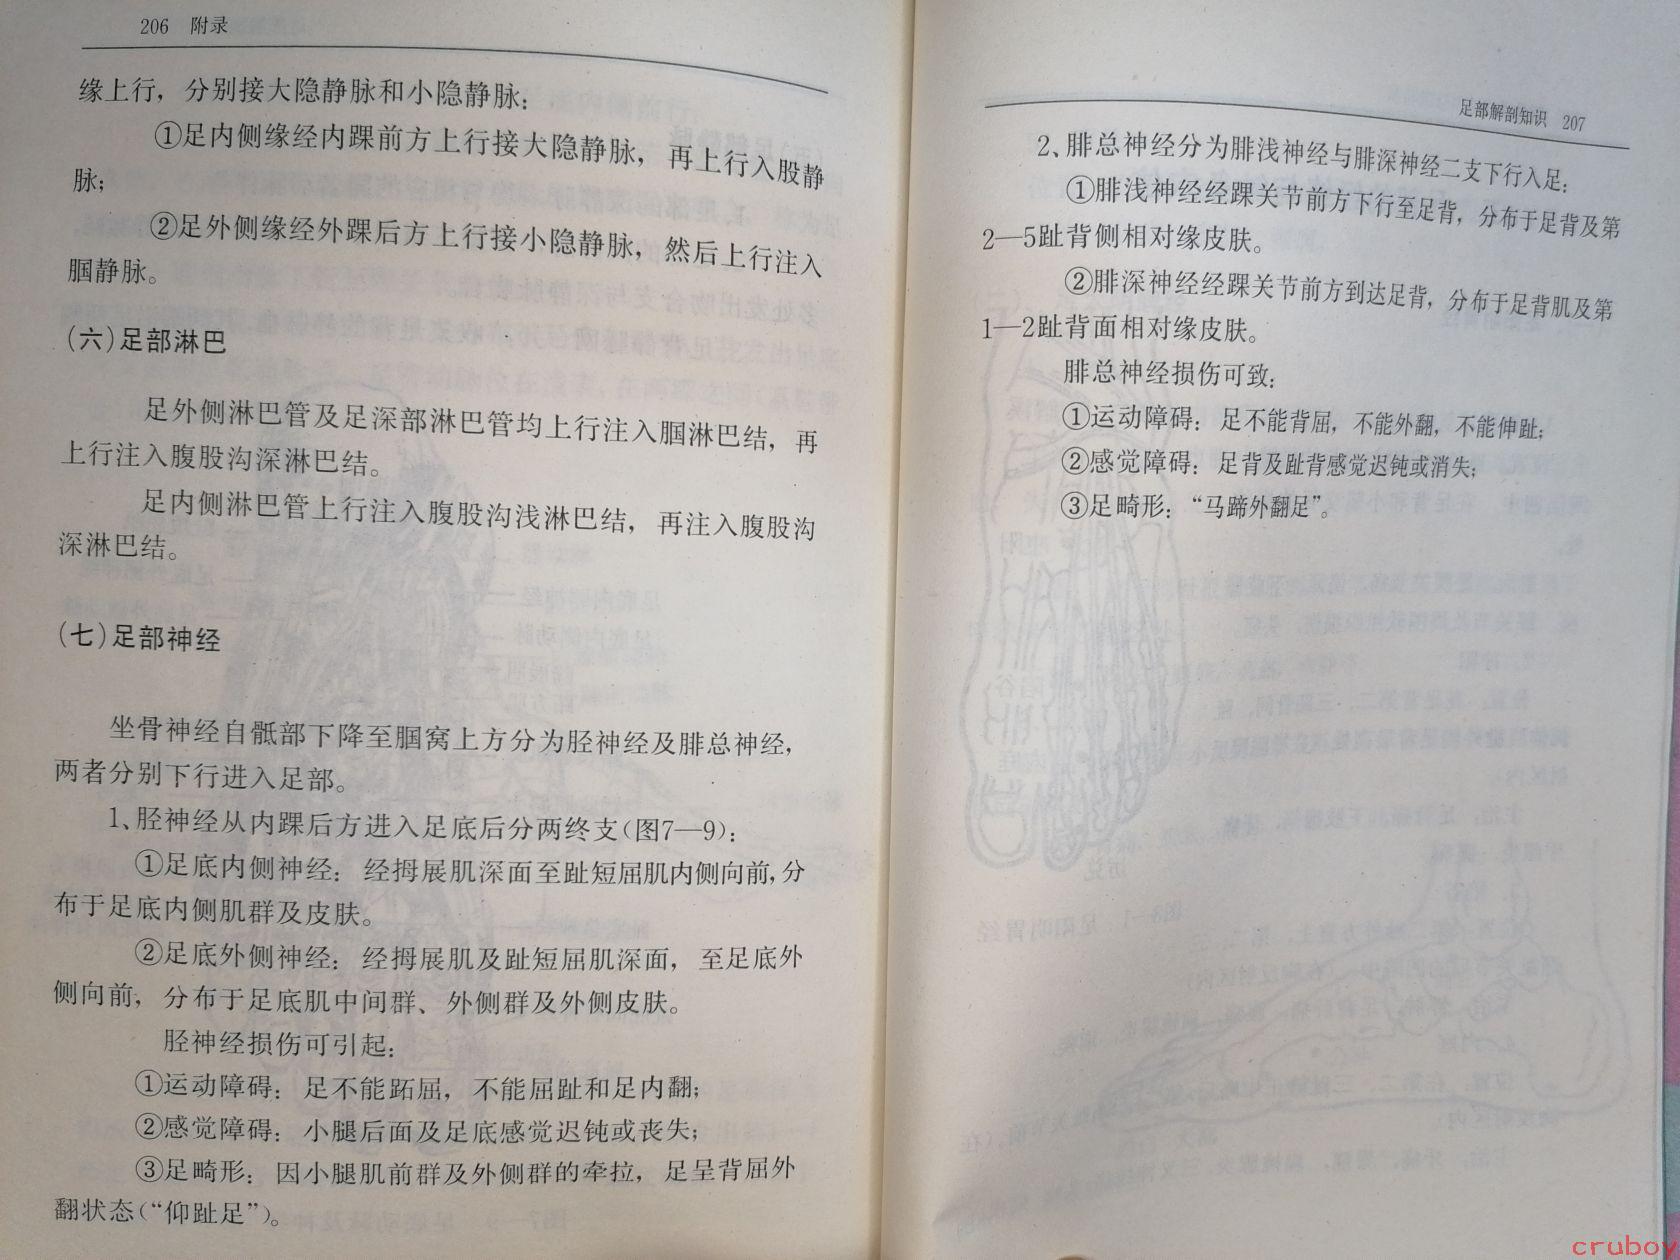 206 附录
缘上行，分别接大隐静脉和小隐静脉：
①足内侧缘经内踝前方上行接大隐静脉，再上行入股静
脉；
②足外侧缘经外踝后方上行接小隐静脉，然后上行注入
腘静脉。
(六)足部淋巴
足外侧淋巴管及足深部淋巴管均上行注入腘淋巴结，再
上行注入腹股沟深淋巴结。
足内侧淋巴管上行注入腹股沟浅淋巴结，再注入腹股沟
深淋巴结。
(七)足部神经
坐骨神经自骶部下降至腘窝上方分为胫神经及腓总神经，
两者分别下行进入足部。
1、胫神经从内踝后方进入足底后分两终支(图7—9)：
①足底内侧神经：经拇展肌深面至趾短屈肌内侧向前,分
布于足底内侧肌群及皮肤。
②足底外侧神经：经拇展肌及趾短屈肌深面，至足底外
侧向前，分布于足底肌中间群、外侧群及外侧皮肤。
胫神经损伤可引起：
①运动障碍：足不能跖屈，不能屈趾和足内翻；
②感觉障碍：小腿后面及足底感觉迟钝或丧失；
③足畸形：因小腿肌前群及外侧群的牵拉，足呈背屈外
翻状态(“仰趾足”)。
足部解剖知识 207
2、腓总神经分为腓浅神经与腓深神经二支下行入足：
①腓浅神经经踝关节前方下行至足背，分布于足背及第
2—5趾背侧相对缘皮肤。
②腓深神经经踝关节前方到达足背，分布于足背肌及第
1—2趾背面相对缘皮肤。
腓总神经损伤可致：
①运动障碍：足不能背屈，不能外翻，不能伸趾；
②感觉障碍：足背及趾背感觉迟钝或消失；
③足畸形：“马蹄外翻足”。
cruboy